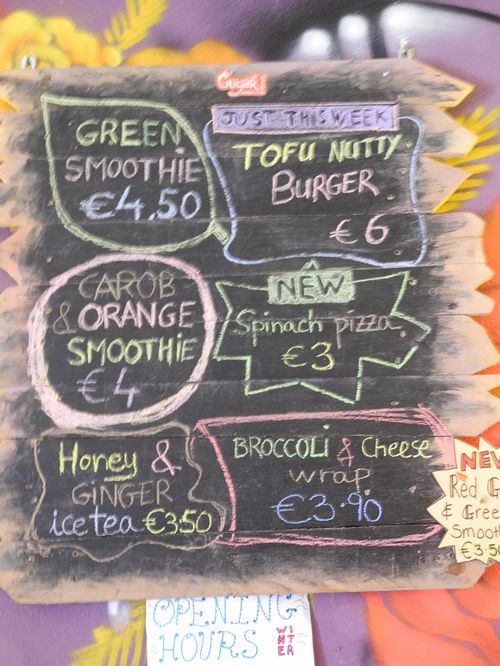 Sugar!
GREEN
SMOOTHiE
€4.50
JUST THIS WEEK
TOFU NUTTY
BURGER
€6
CAROB
& ORANGE
SMOOTHiE
€4
NEW
Spinach pizza
€3
Honey &
GINGER
ice tea €3.50
BROCCOLi & Cheese
wrap
€3.90
NEW
Red
& Gree
Smoot
€3.5
OPENING
HOURS
WINTER